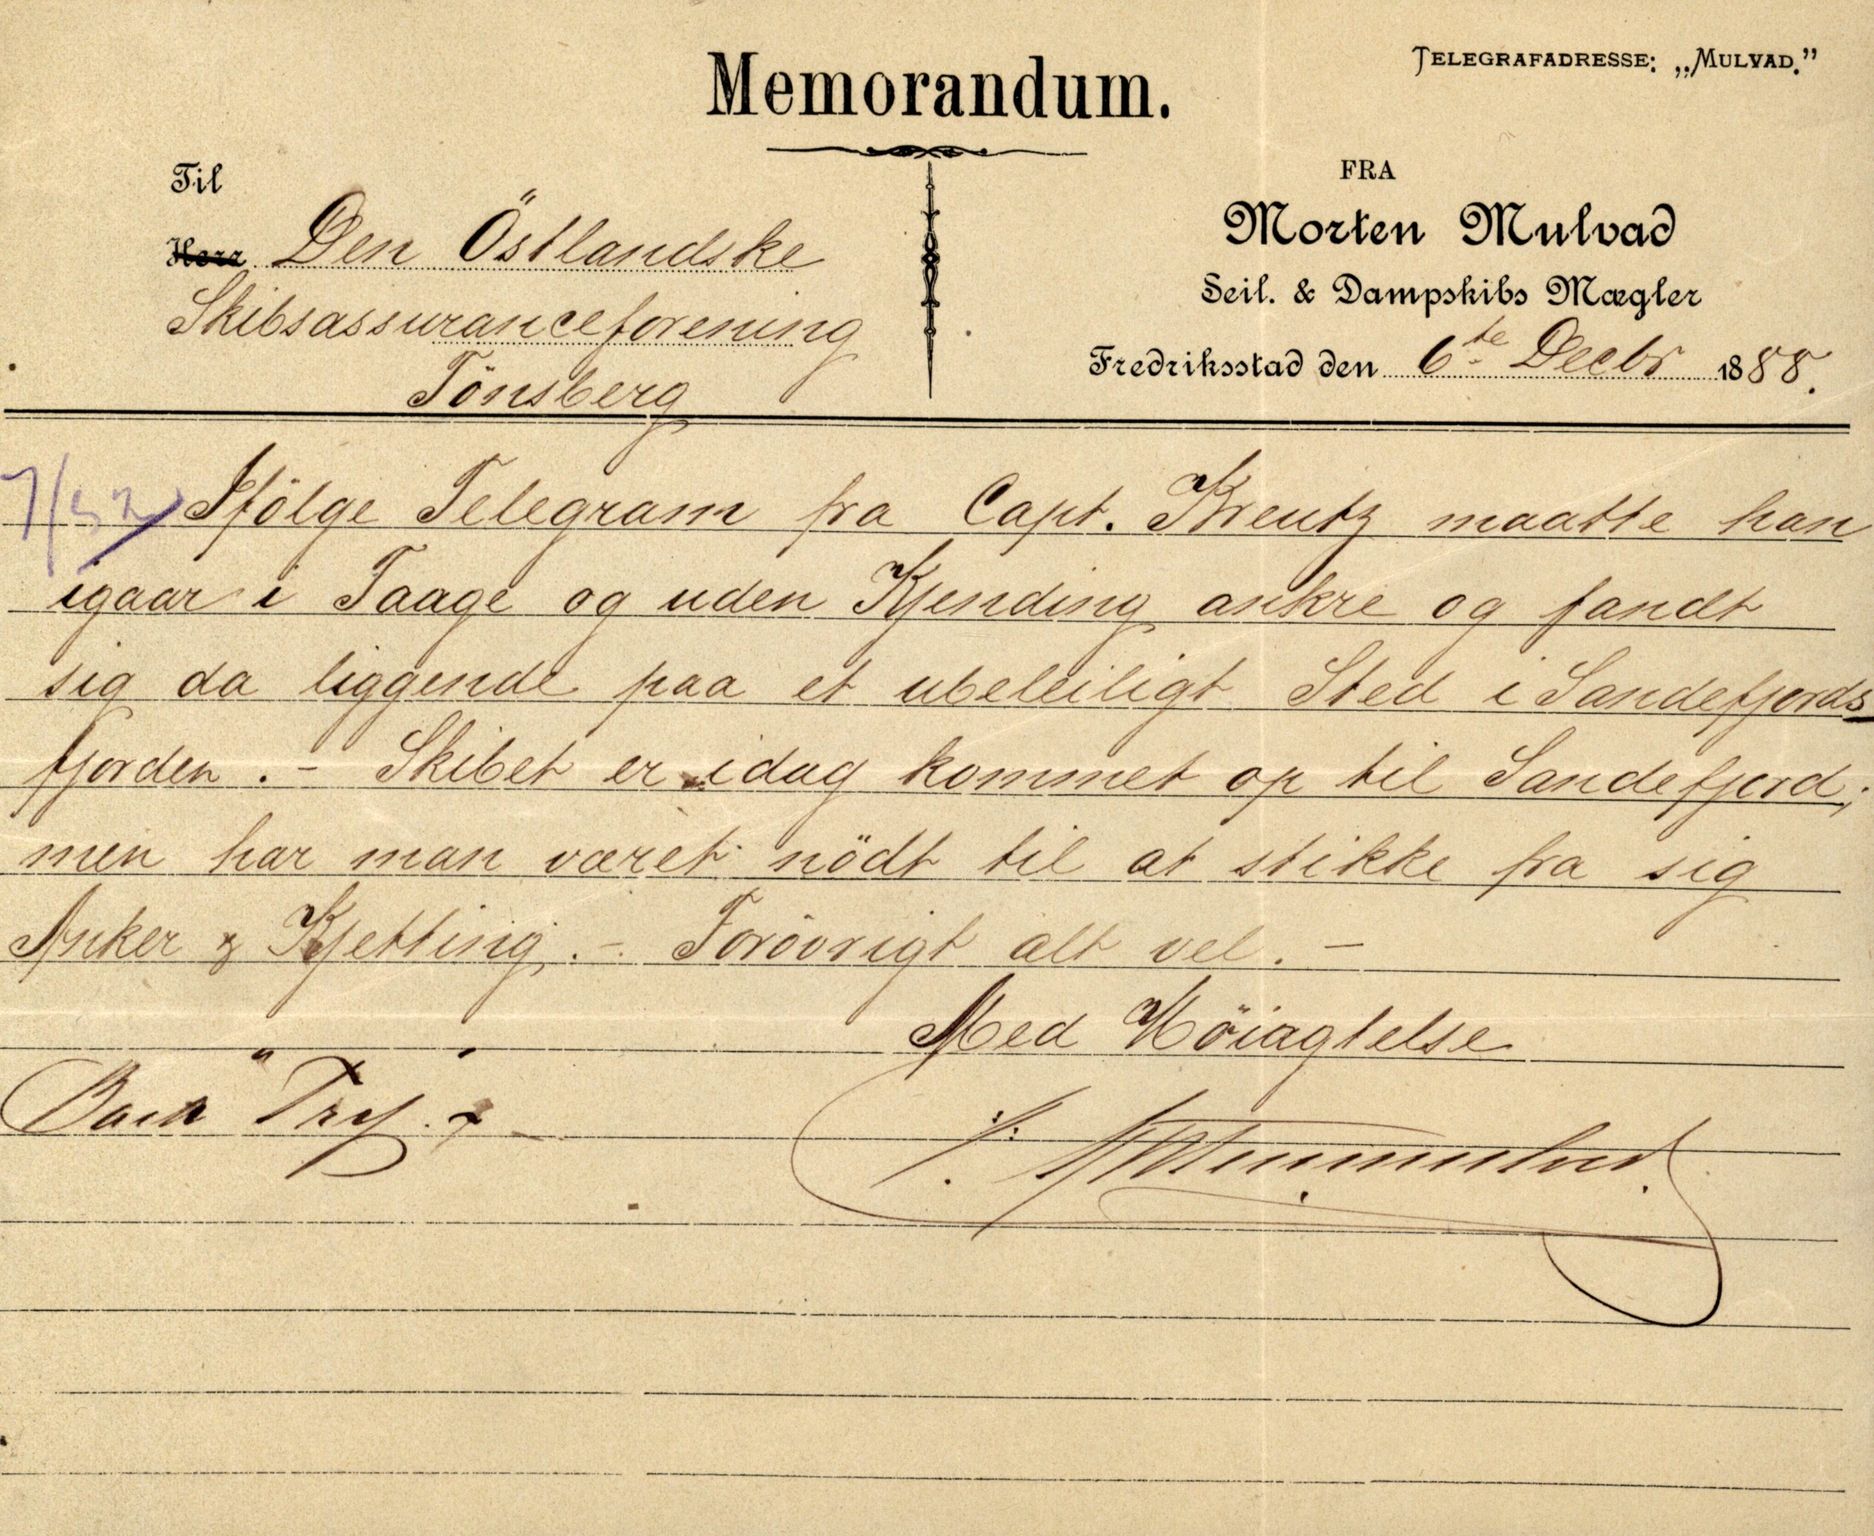 Memorandum.
TELEGRAFADRESSE: „MULVAD."
Til
Herr Den Östlandske
Skibsassuranceforening
Tönsberg
FRA
Morten Mulvad
Seil. & Dampskibs Mægler
Fredriksstad den 6te Decbr 1888.
7/12
Ifölge Telegram fra Capt. Kreutz maatte han
igaar i Taage og uden Kjending ankre og fandt
sig da liggende paa et ubeleiligt Sted i Sandefjords
fjorden. - Skibet er idag kommet op til Sandefjord;
men har man været nödt til at stikke fra sig
Anker & Kjetting. - Forövrigt alt vel. -
Med Höiagtelse
Bark "Try".